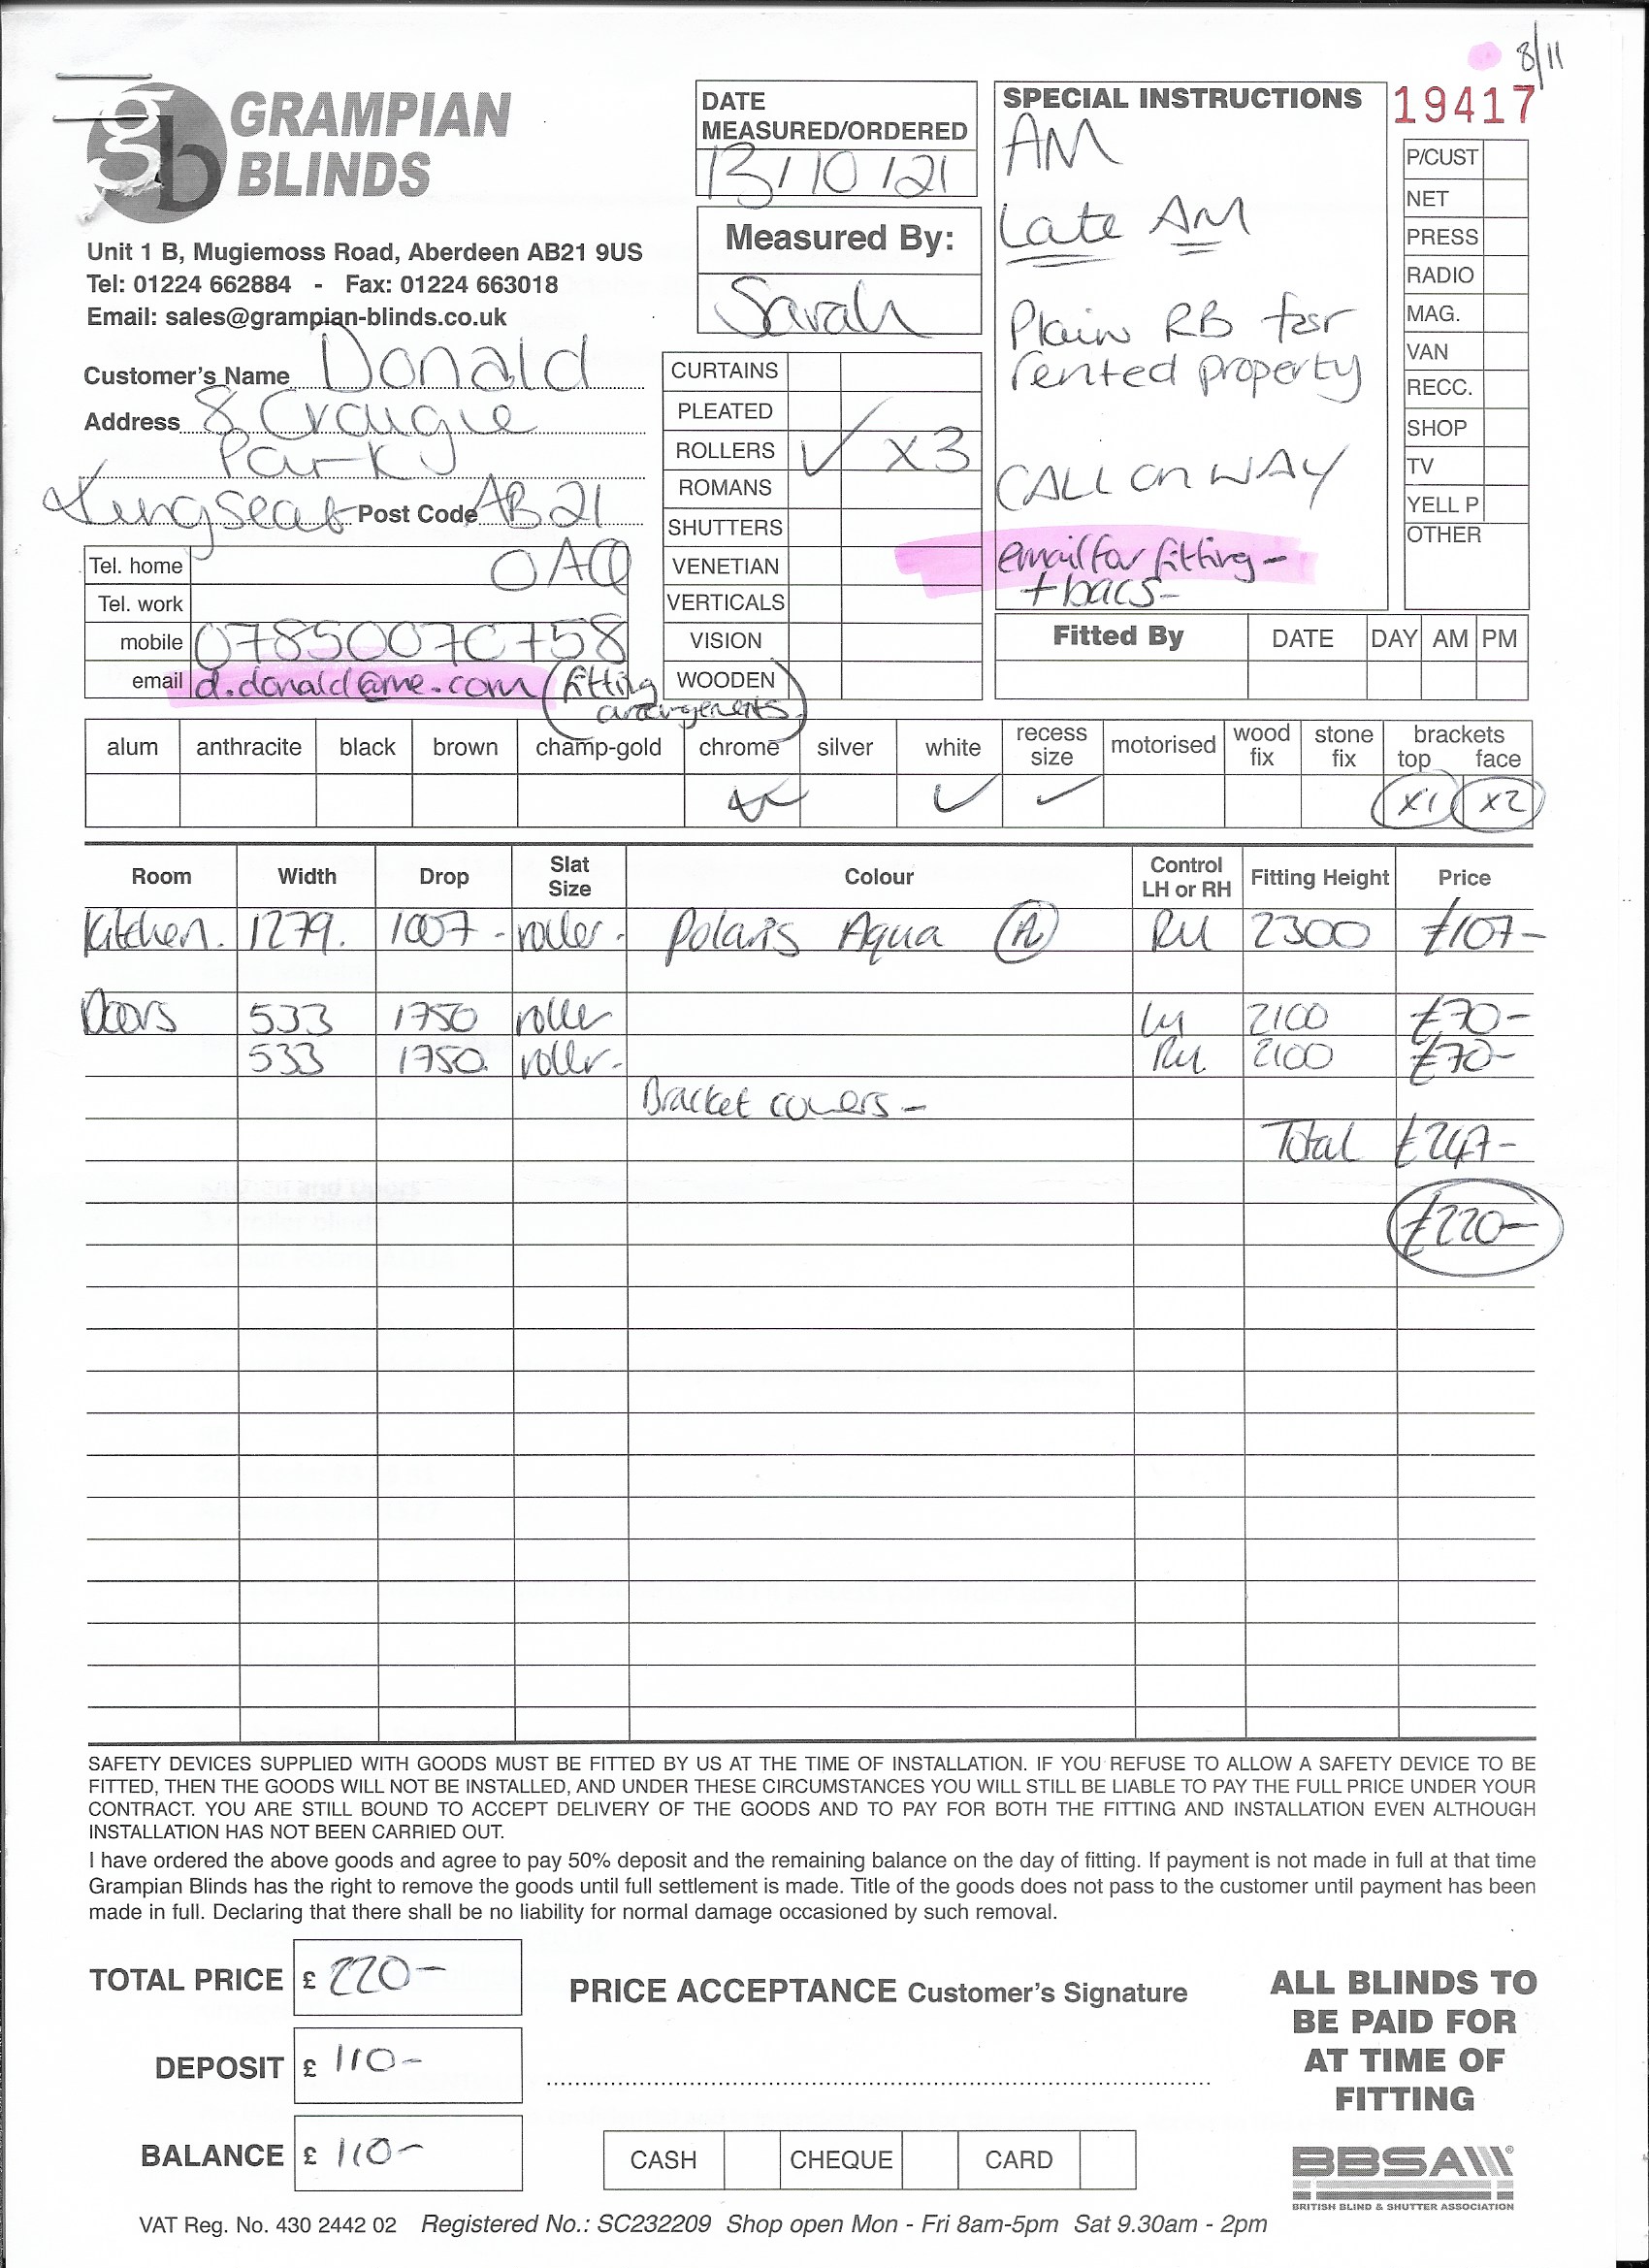 8/11
GRAMPIAN
BLINDS
Unit 1 B, Mugiemoss Road, Aberdeen AB21 9US
Tel: 01224 662884 - Fax: 01224 663018
Email: sales@grampian-blinds.co.uk
DATE
MEASURED/ORDERED
13/10/21
Measured By:
Sarah
SPECIAL INSTRUCTIONS
AM
Late AM
Plain RB for
rented property
CALL on WAY
email for fitting -
+ bacs -
19417
P/CUST
NET
PRESS
RADIO
MAG.
VAN
RECC.
SHOP
TV
YELL P
OTHER
Customer's Name Donald
Address 8 Craigie
Park
Kingseat Post Code AB21
0AQ
Tel. home
Tel. work
mobile 07850070758
email d.donald@me.com (fitting
arrangements)
CURTAINS
PLEATED
ROLLERS ✓ x3
ROMANS
SHUTTERS
VENETIAN
VERTICALS
VISION
WOODEN
Fitted By DATE DAY AM PM
alum anthracite black brown champ-gold chrome silver white recess size motorised wood fix stone fix brackets top face
✓ ✓ x1 x2
Room Width Drop Slat Size Colour Control LH or RH Fitting Height Price
Kitchen. 1279. 1007 - roller - Polaris Aqua (A) RH 2300 £107-
Doors 533 1750 roller LH 2100 £70-
533 1750. roller - RH 2100 £70-
Bracket covers -
Total £247-
£220-
SAFETY DEVICES SUPPLIED WITH GOODS MUST BE FITTED BY US AT THE TIME OF INSTALLATION. IF YOU REFUSE TO ALLOW A SAFETY DEVICE TO BE
FITTED, THEN THE GOODS WILL NOT BE INSTALLED, AND UNDER THESE CIRCUMSTANCES YOU WILL STILL BE LIABLE TO PAY THE FULL PRICE UNDER YOUR
CONTRACT. YOU ARE STILL BOUND TO ACCEPT DELIVERY OF THE GOODS AND TO PAY FOR BOTH THE FITTING AND INSTALLATION EVEN ALTHOUGH
INSTALLATION HAS NOT BEEN CARRIED OUT.
I have ordered the above goods and agree to pay 50% deposit and the remaining balance on the day of fitting. If payment is not made in full at that time
Grampian Blinds has the right to remove the goods until full settlement is made. Title of the goods does not pass to the customer until payment has been
made in full. Declaring that there shall be no liability for normal damage occasioned by such removal.
TOTAL PRICE £ 220-
DEPOSIT £ 110-
BALANCE £ 110-
PRICE ACCEPTANCE Customer's Signature
CASH CHEQUE CARD
ALL BLINDS TO
BE PAID FOR
AT TIME OF
FITTING
BBSA
BRITISH BLIND & SHUTTER ASSOCIATION
VAT Reg. No. 430 2442 02 Registered No.: SC232209 Shop open Mon - Fri 8am-5pm Sat 9.30am - 2pm